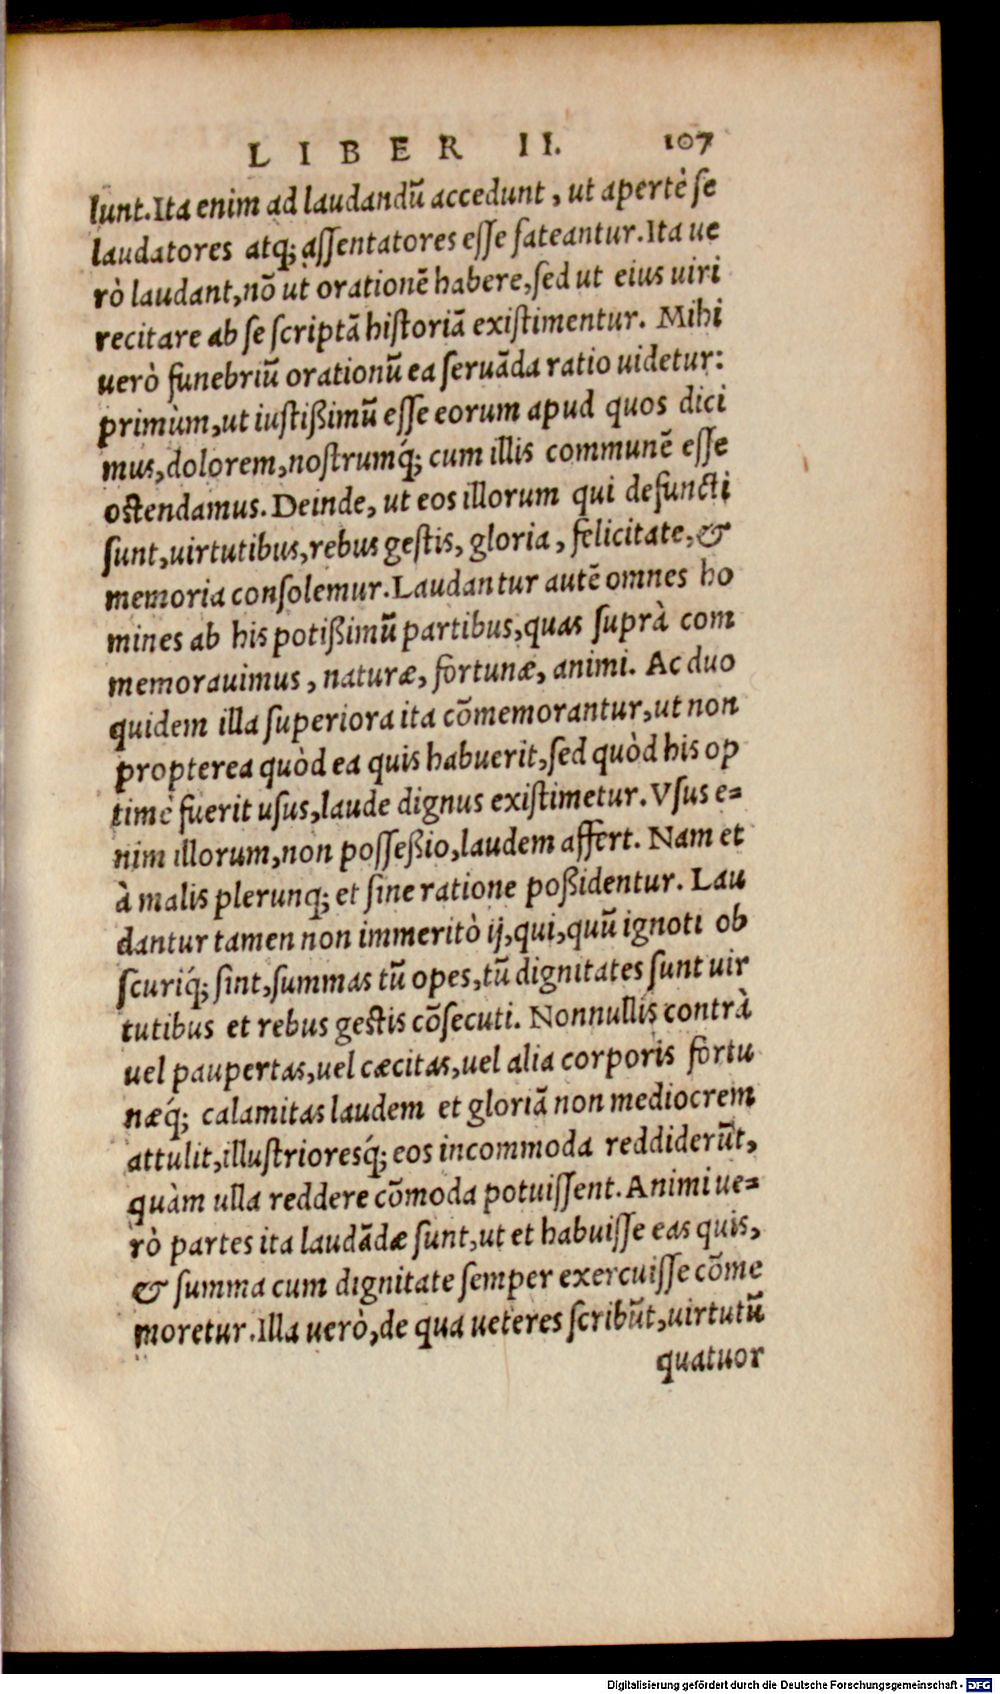 LIBER II. 107
lunt. Ita enim ad laudandũ accedunt, ut apertè se
laudatores atq; assentatores esse fateantur. Ita ue
rò laudant, nõ ut orationẽ habere, sed ut eius uiri
recitare ab se scriptã historiã existimentur. Mihi
uerò funebriũ orationũ ea seruãda ratio uidetur:
primùm, ut iustißimũ esse eorum apud quos dici
mus, dolorem, nostrumq́; cum illis communẽ esse
ostendamus. Deinde, ut eos illorum qui defuncti
sunt, uirtutibus, rebus gestis, gloria, felicitate, &
memoria consolemur. Laudantur autẽ omnes ho
mines ab his potißimũ partibus, quas suprà com
memorauimus, naturæ, fortunæ, animi. Ac duo
quidem illa superiora ita cõmemorantur, ut non
propterea quòd ea quis habuerit, sed quòd his op
timè fuerit usus, laude dignus existimetur. Vsus e=
nim illorum, non posseßio, laudem affert. Nam et
à malis plerunq; et sine ratione poßidentur. Lau
dantur tamen non immeritò ij, qui, quũ ignoti ob
scuriq́; sint, summas tũ opes, tũ dignitates sunt uir
tutibus et rebus gestis cõsecuti. Nonnullis contrà
uel paupertas, uel cæcitas, uel alia corporis fortu
næq́; calamitas laudem et gloriã non mediocrem
attulit, illustrioresq́; eos incommoda reddiderũt,
quàm ulla reddere cõmoda potuissent. Animi ue=
rò partes ita laudãdæ sunt, ut et habuisse eas quis,
& summa cum dignitate semper exercuisse cõme
moretur. Illa uerò, de qua ueteres scribũt, uirtutũ
quatuor
Digitalisierung gefördert durch die Deutsche Forschungsgemeinschaft - DFG